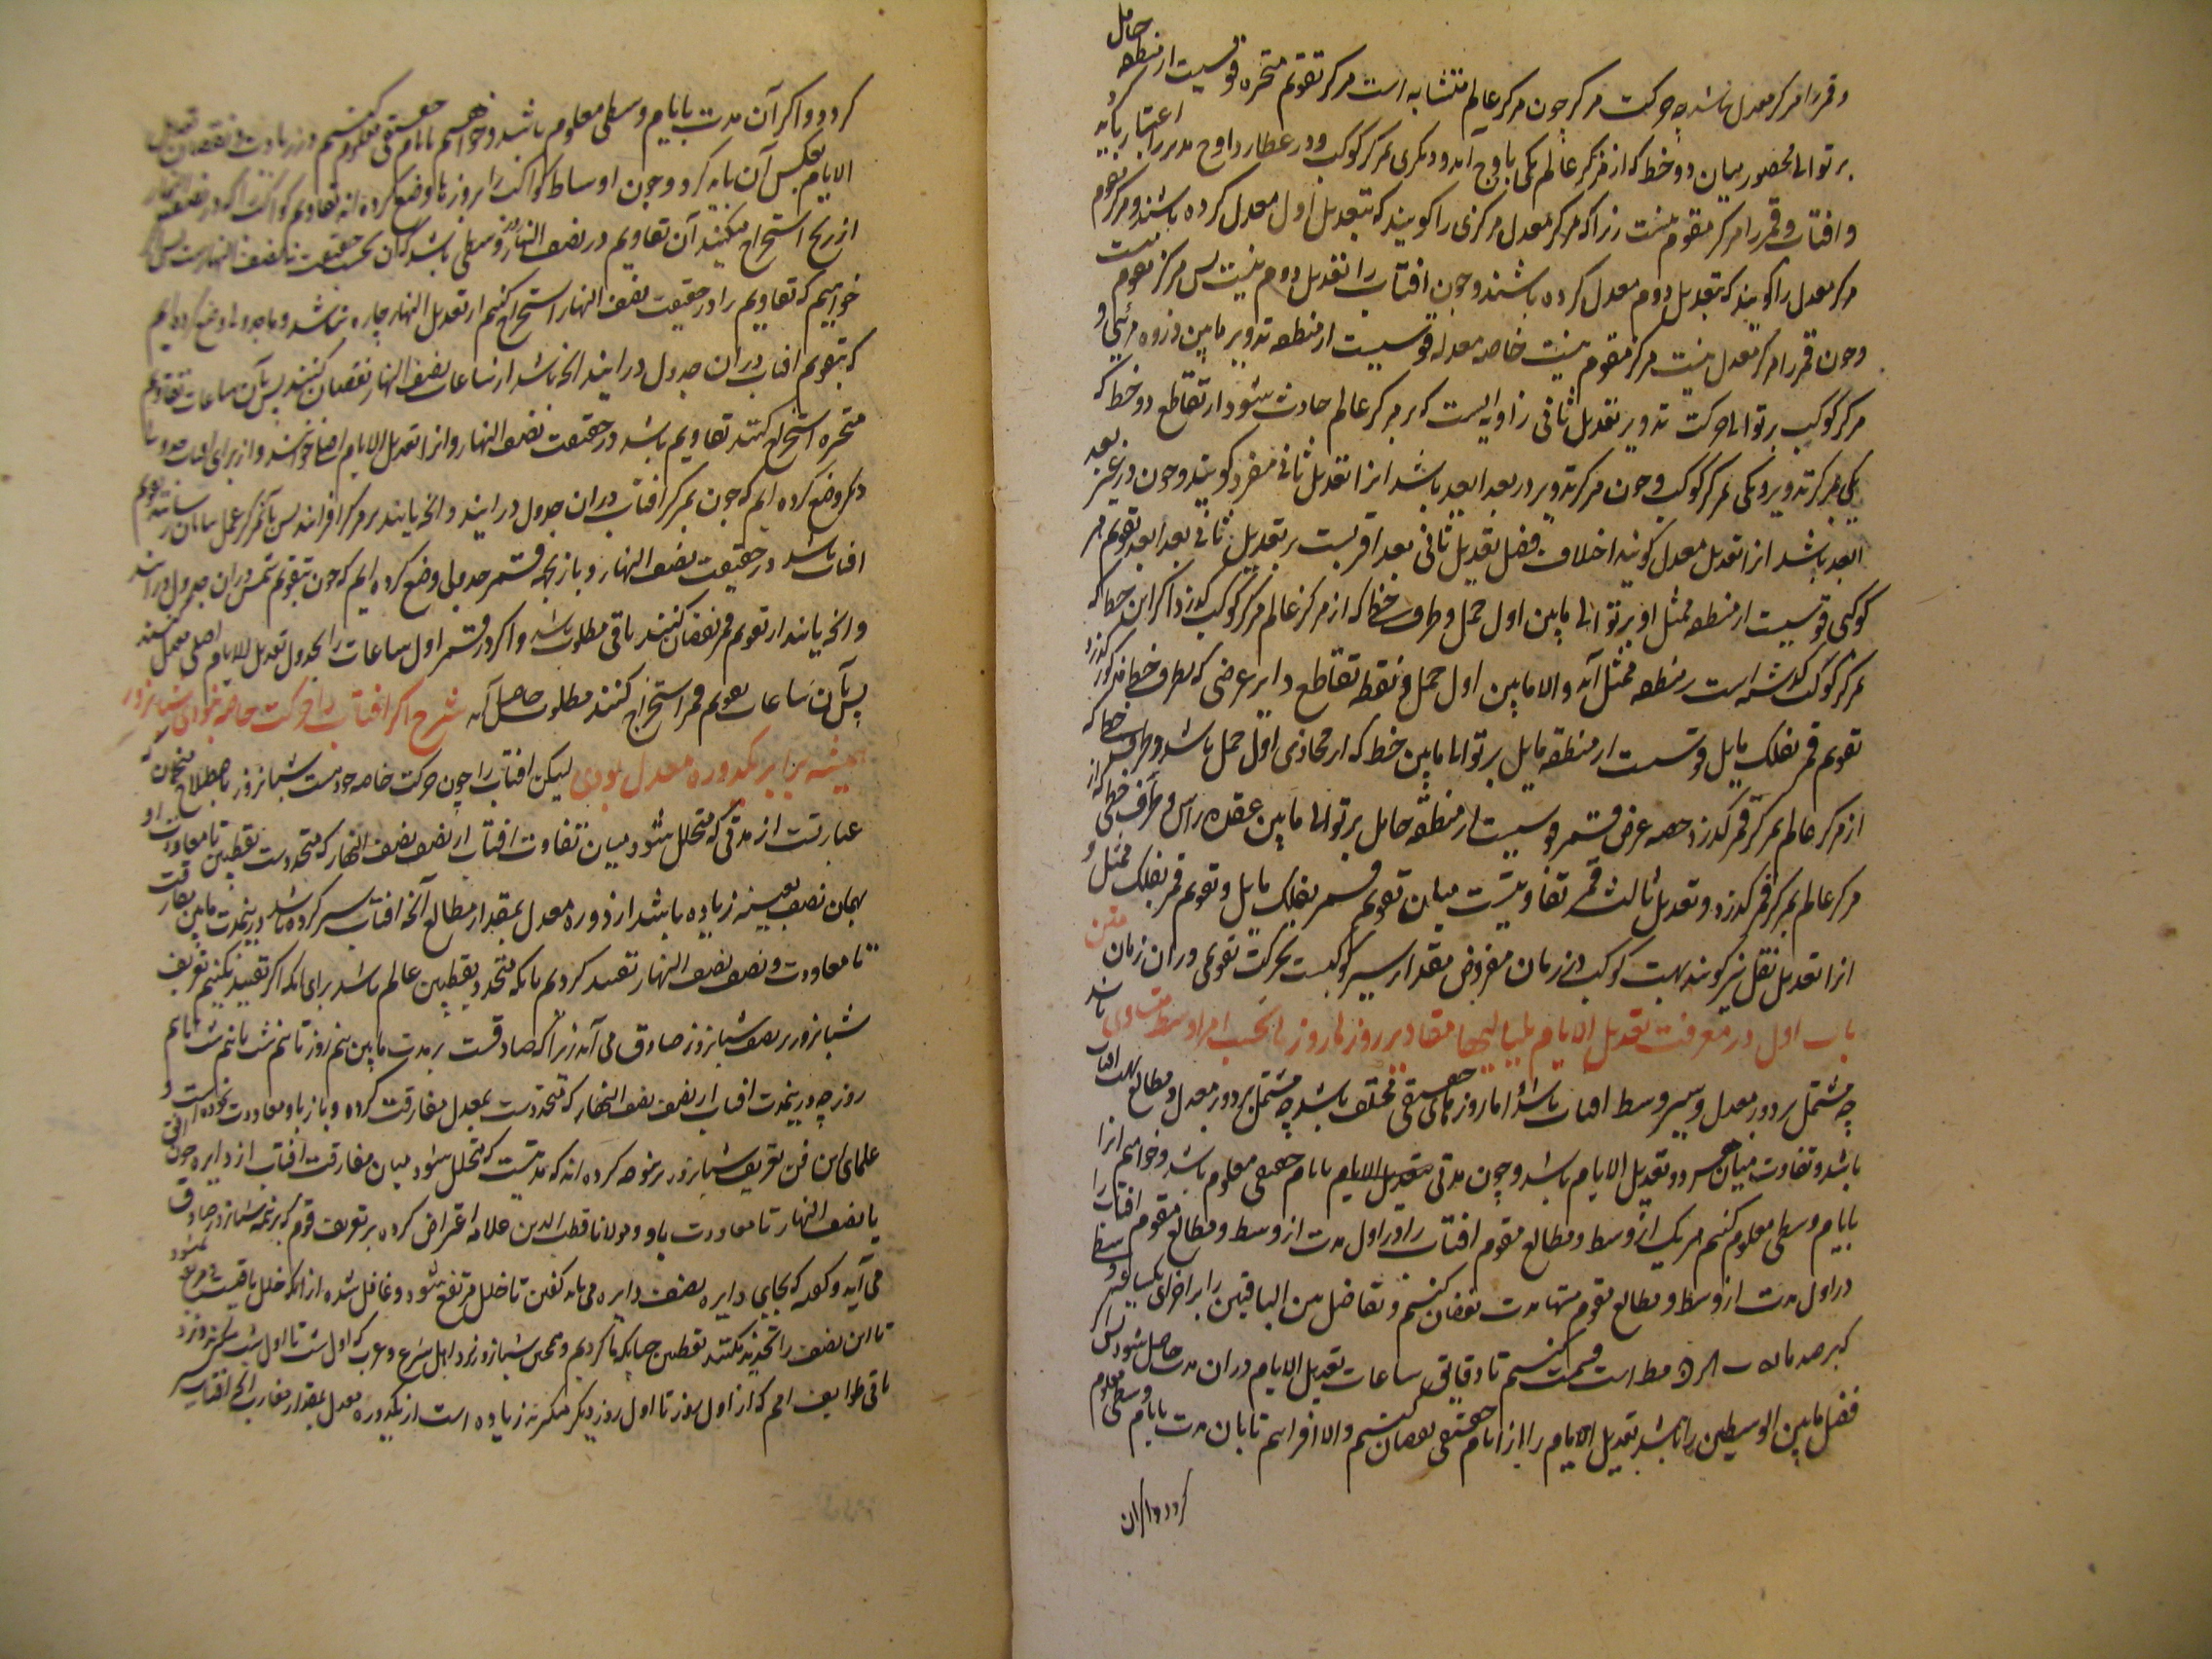 و قمر را مرکز معدل نباشد چه حرکت مرکز چون مرکز عالم متشابه است مرکز تقویم متحیره قوسیست از منطقه حامل
بر توالی محصور میان دو خط که از مرکز عالم یکی باوج آمد و دیگری بمرکز کوکب و در عطارد اوج مدیر را اعتبار باید کرد
و افتاب و قمر را مرکز مقوم نیست زیرا که مرکز معدل مرکزی را کویند که بتعدیل اول معدل کرده باشند و مرکز مقوم
مرکز معدل را کویند که بتعدیل دوم معدل کرده باشند و چون افتاب را تعدیل دوم نیست پس مرکز مقوم نیست
و چون قمر را مرکز معدل نیست مرکز مقوم نیست خاصه معدله قوسیست از منطقه تدویر مابین ذروه مرئی و
مرکز کوکب بر توالی حرکت تدویر تعدیل ثانی زاویه ایست که بر مرکز عالم حادث شود از تقاطع دو خط که
یکی بمرکز تدویر و یکی بمرکز کوکب و چون مرکز تدویر در بعد ابعد باشد انرا تعدیل ثانی مفرد کویند و چون در غیر بعد
ابعد باشد انرا تعدیل معدل کویند اختلاف فضل تعدیل ثانی بعد اقربست بر تعدیل ثانی بعد ابعد تقویم هر
کوکبی قوسیست از منطقه ممثل او بر توالی مابین اول حمل و طرف خطی که از مرکز عالم بمرکز کوکب کذرد اکر این خط که
بمرکز کوکب کذشته است بر منطقه ممثل آید والا مابین اول حمل و نقطه تقاطع دایره عرضی که بطرف خط مذکور کذرد
تقویم قمر بفلک مایل قوسیست از منطقه مایل بر توالی مابین خط که از محاذی اول حمل باشد و طرف خطی که
از مرکز عالم بمرکز قمر کذرد حصه عرض قمر قوسیست از منطقه حامل بر توالی مابین عقده راس و طرف خطی که از
مرکز عالم بمرکز قمر کذرد و تعدیل ثالث قمر تفاوتیست میان تقویم قمر بفلک مایل و تقویم قمر بفلک ممثل و
انرا تعدیل نقل نیز کویند بهت کوکب در زمان مفروض مقدار سیر کوکبست بحرکت تقویمی در ان زمان متن
باب اول در معرفت تعدیل الایام بلیالیها مقادیر روز تا روز بحسب امر اوسط متساوی باشد
چه مشتمل بر دور معدل و سیر وسط افتاب باشد اما روزهای حقیقی مختلف باشد چه مشتمل بر دور معدل و مطالع بهت افتاب
باشد و تفاوت میان هر دو تعدیل الایام باشد و چون مدتی بایام حقیقی معلوم باشد و خواهیم انرا
بایام وسطی معلوم کنیم هر یک از وسط و مطالع مقوم افتاب را در اول مدت از وسط و مطالع مقوم افتاب را
در اول مدت از وسط و مطالع مقوم منتهای مدت نقصان کنیم و تفاضل بین الباقیین را بر اجزای یکساعت وسطی
قسمت کنیم تا دقایق ساعات تعدیل الایام در ان مدت حاصل شود پس اکر
فضل مابین الوسطین را باشد تعدیل الایام را از ایام حقیقی نقصان کنیم والا افزاییم تا بان مدت بایام وسطی معلوم
کردد و اکر ان
کردد و اکر آن مدت بایام وسطی معلوم باشد و خواهیم بایام حقیقی معلوم کنیم در زیادت و نقصان تعدیل
الایام بعکس آن باید کرد و چون اوساط کواکب را بروزها وضع کرده اند تقاویم کواکب که در نصف النهار
از زیج استخراج میکنند آن تقاویم در نصف النهار وسطی باشد که آن بحسب حقیقت نه نصف النهارست پس اکر
خواهیم که تقاویم را در حقیقت نصف النهار استخراج کنیم از تعدیل النهار چاره نباشد و ما جدولی وضع کرده ایم
که بتقویم افتاب در ان جدول درایند انچه باشد از ساعات نصف النهار نقصان کنند پس بآن ساعات تقاویم
متحیره استخراج کنند تقاویم باشد در حقیقت نصف النهار و انرا تعدیل الایام اصلی خوانند و از برای افتاب جدولی
دیکر وضع کرده ایم که چون بمرکز افتاب در ان جدول درایند و انچه یابند بر مرکز افزایند پس بآن مرکز عمل بپایان رسانند تقویم
افتاب باشد در حقیقت نصف النهار و باز بجهت قمر جدولی وضع کرده ایم که چون بتقویم شمس در ان جدول درایند
و انچه یابند از تقویم قمر نقصان کنند باقی مطلوب باشد و اکر در قمر اول ساعات را بجدول تعدیل الایام اصلی معدل کنند
پس بآن ساعات تقویم قمر استخراج کنند مطلوب حاصل آید شرح اکر افتاب را حرکت خاصه نبودی شبانروز
همیشه برابر یکدوره معدل بودی لیکن افتاب را چون حرکت خاصه خود هست شبانروز باصطلاح منجمان که
عبارتست از مدتی که متخلل شود میان تفاوت افتاب از نصف نصف النهار که متحد دست بقطبین تا معاودت او
بهمان نصف بعینه زیاده باشد از دوره معدل بمقدار مطالع آنچه افتاب سیر کرده باشد درینمدت مابین مفارقت
تا معاودت و نصف نصف النهار تقیید کردیم بانکه متحدد بقطبین عالم باشد برای انکه اکر تقیید نکنیم تعریف
شبانروز بر نصف شبانروز صادق می آید زیرا که صادقست بر مدت مابین نیم روز تا نیم شب یا نیم شب تا نیم
روز چه درینمدت افتاب از نصف نصف النهار که متحددست بمعدل مفارقت کرده و باز باو معاودت نموده است و
علمای این فن تعریف شبانروز برینوجه کرده اند که مدتیست که متخلل شود میان مفارقت افتاب از دایره چون افق
یا نصف النهار تا معاودت باو و مولانا قطب الدین علامه اعتراض کرده بر تعریف قوم که بر نیمه شبانروز صادق
می آید و کفته که بجای دایره نصف دایره می باید کفتن تا خلل مرتفع شود و غافل شده از انکه خلل باقیست
تا این نصف را تحدید نکنند بقطبین چنانکه ما کردیم و همچنین شبانروز نزد اهل شرع و عرب که اول شب تا اول شب دیکر و نزد
باقی طوایف امم که از اول روز تا اول روز دیکر میکیرند زیاده است از یکدوره معدل بمقدار مغارب آنچه افتاب سیر